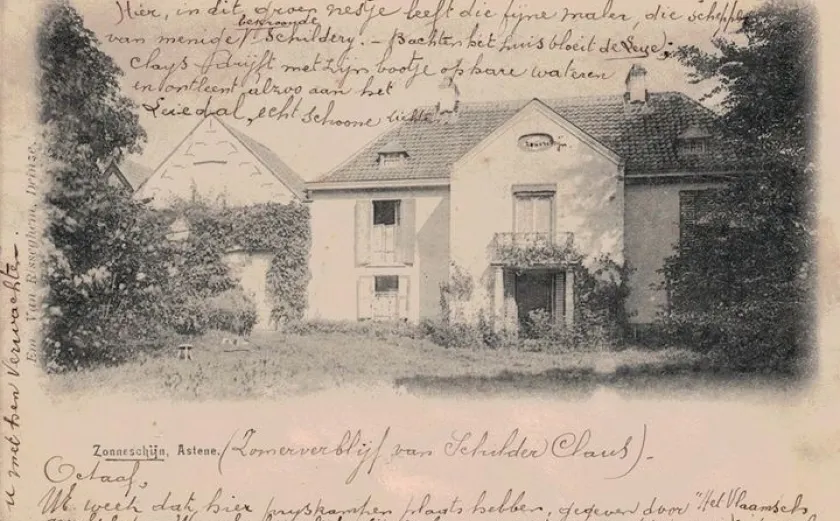 Hier, in dit groen nestje leeft die fijne maler, die schepper
van menige bekroonde schildery. – Bachten het huis bloeit de Leye;
Clays drijft met zijn bootje op hare wateren
en ontleent alzoo aan het
Leiedal, echt schoone lichte
Em. Van Risseghem, Deinze.
u met hen verwachten.
Zonneschijn, Astene. (Zomerverblijf van Schilder Claus)
Octaaf,
UE weet dat hier pryskampen plaats hebben, gegeven door "Het Vlaamsch